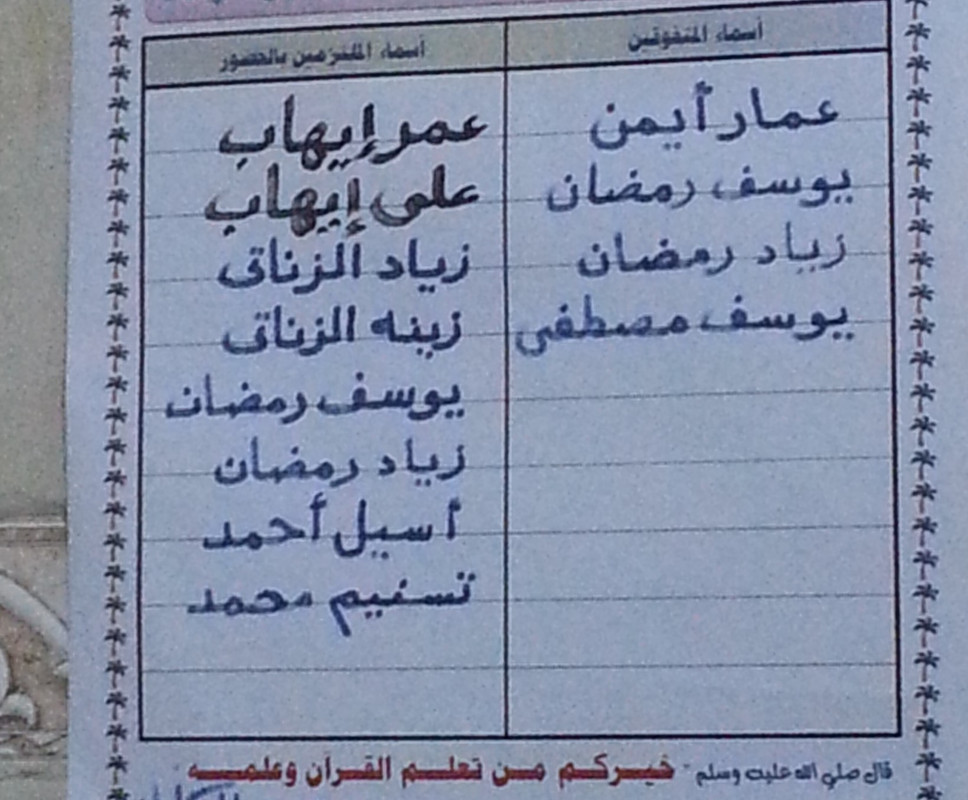 أسماء المتفوقين
عمار أيمن
يوسف رمضان
زياد رمضان
يوسف مصطفى
أسماء الملتزمين بالحضور
عمر إيهاب
على إيهاب
زياد الزناتى
زينه الزناتى
يوسف رمضان
زياد رمضان
أسيل أحمد
تسنيم محمد
قال صلي الله عليه وسلم " خيركم من تعلم القرآن وعلمه